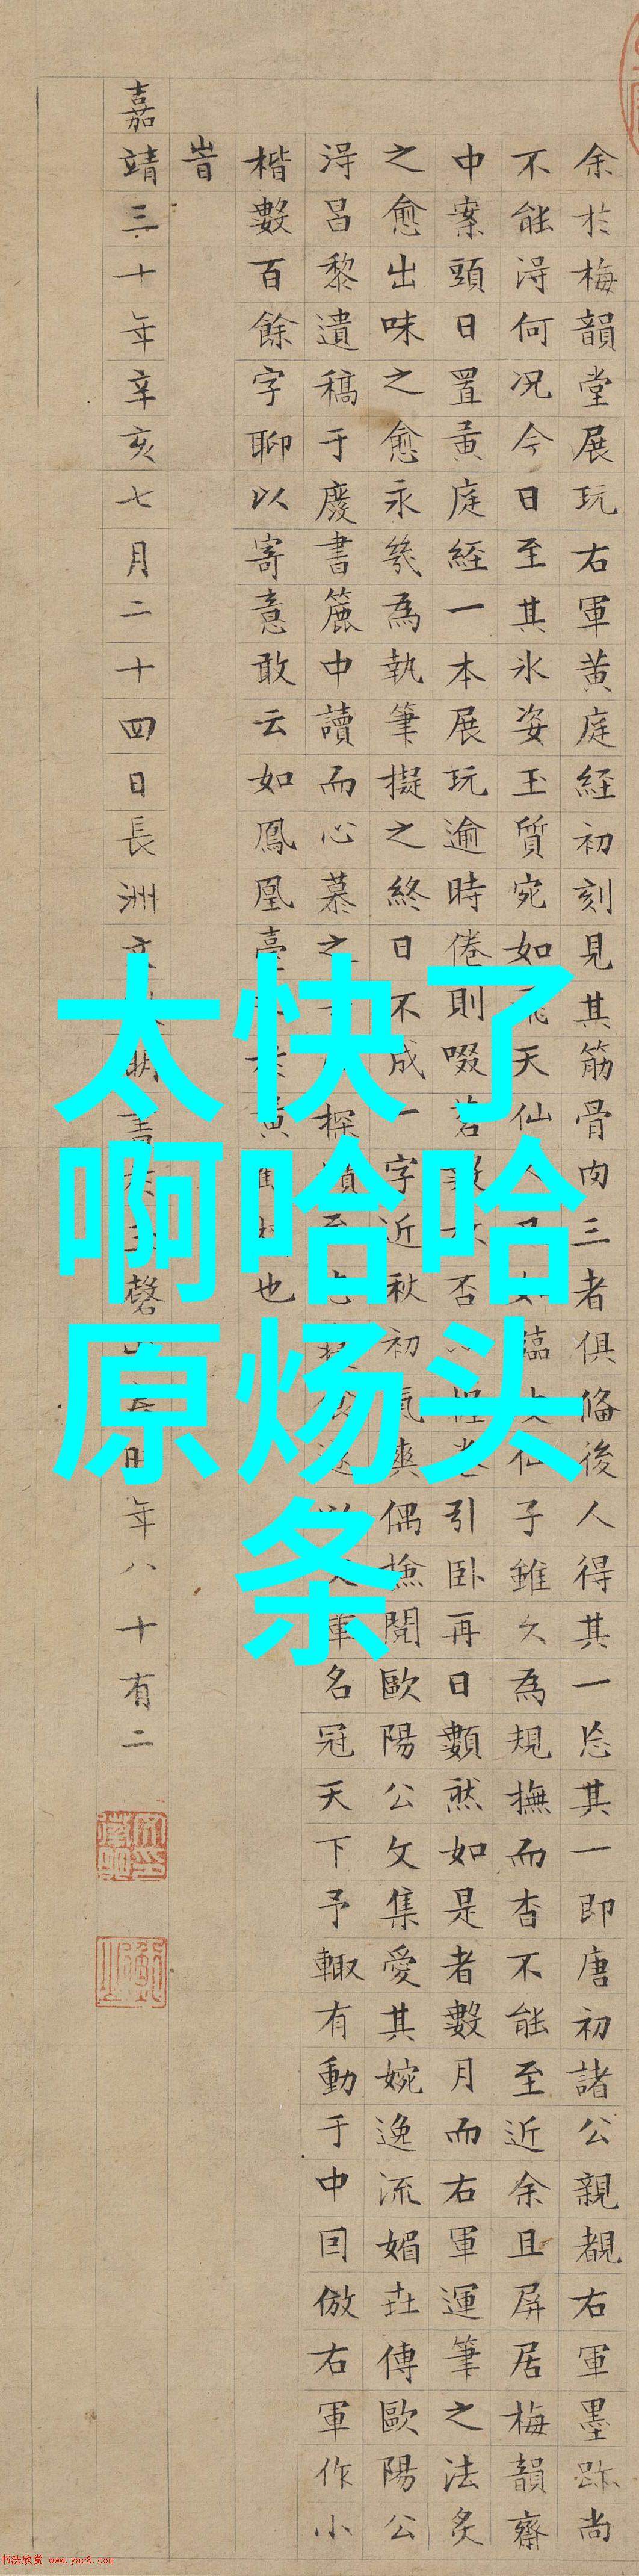 余於梅韻堂展玩右軍黄庭經初刻見其筋骨肉三者俱俻後人得其一忘其一即唐初諸公親覩右軍墨跡尚
不能得何况今日至其氷姿玉質宛如飛天仙人又如臨波仙子雖久為規撫而杳不能至近余且屏居梅韻齋
中案頭日置黄庭經一本展玩逾時倦則啜茗數
否
引卧再日數然如是者數月而右軍運筆之法炙
之愈出味之愈永幾為執筆擬之終日不成一字近秋初氣爽偶撿閱歐陽公文集愛其婉逸流媚世傳歐陽公
得昌黎遺稿于廢書簏中讀而心慕之
探
軍名冠天下予輙有動于中因倣右軍作小
楷數百餘字聊以寄意敢云如鳳凰臺
黄
也
旹
嘉靖三十年辛亥七月二十四日長洲文
明書於玉磬山
時年八十有二
太快了
啊哈哈
原炀头
条
书法欣赏 www.yac8.com